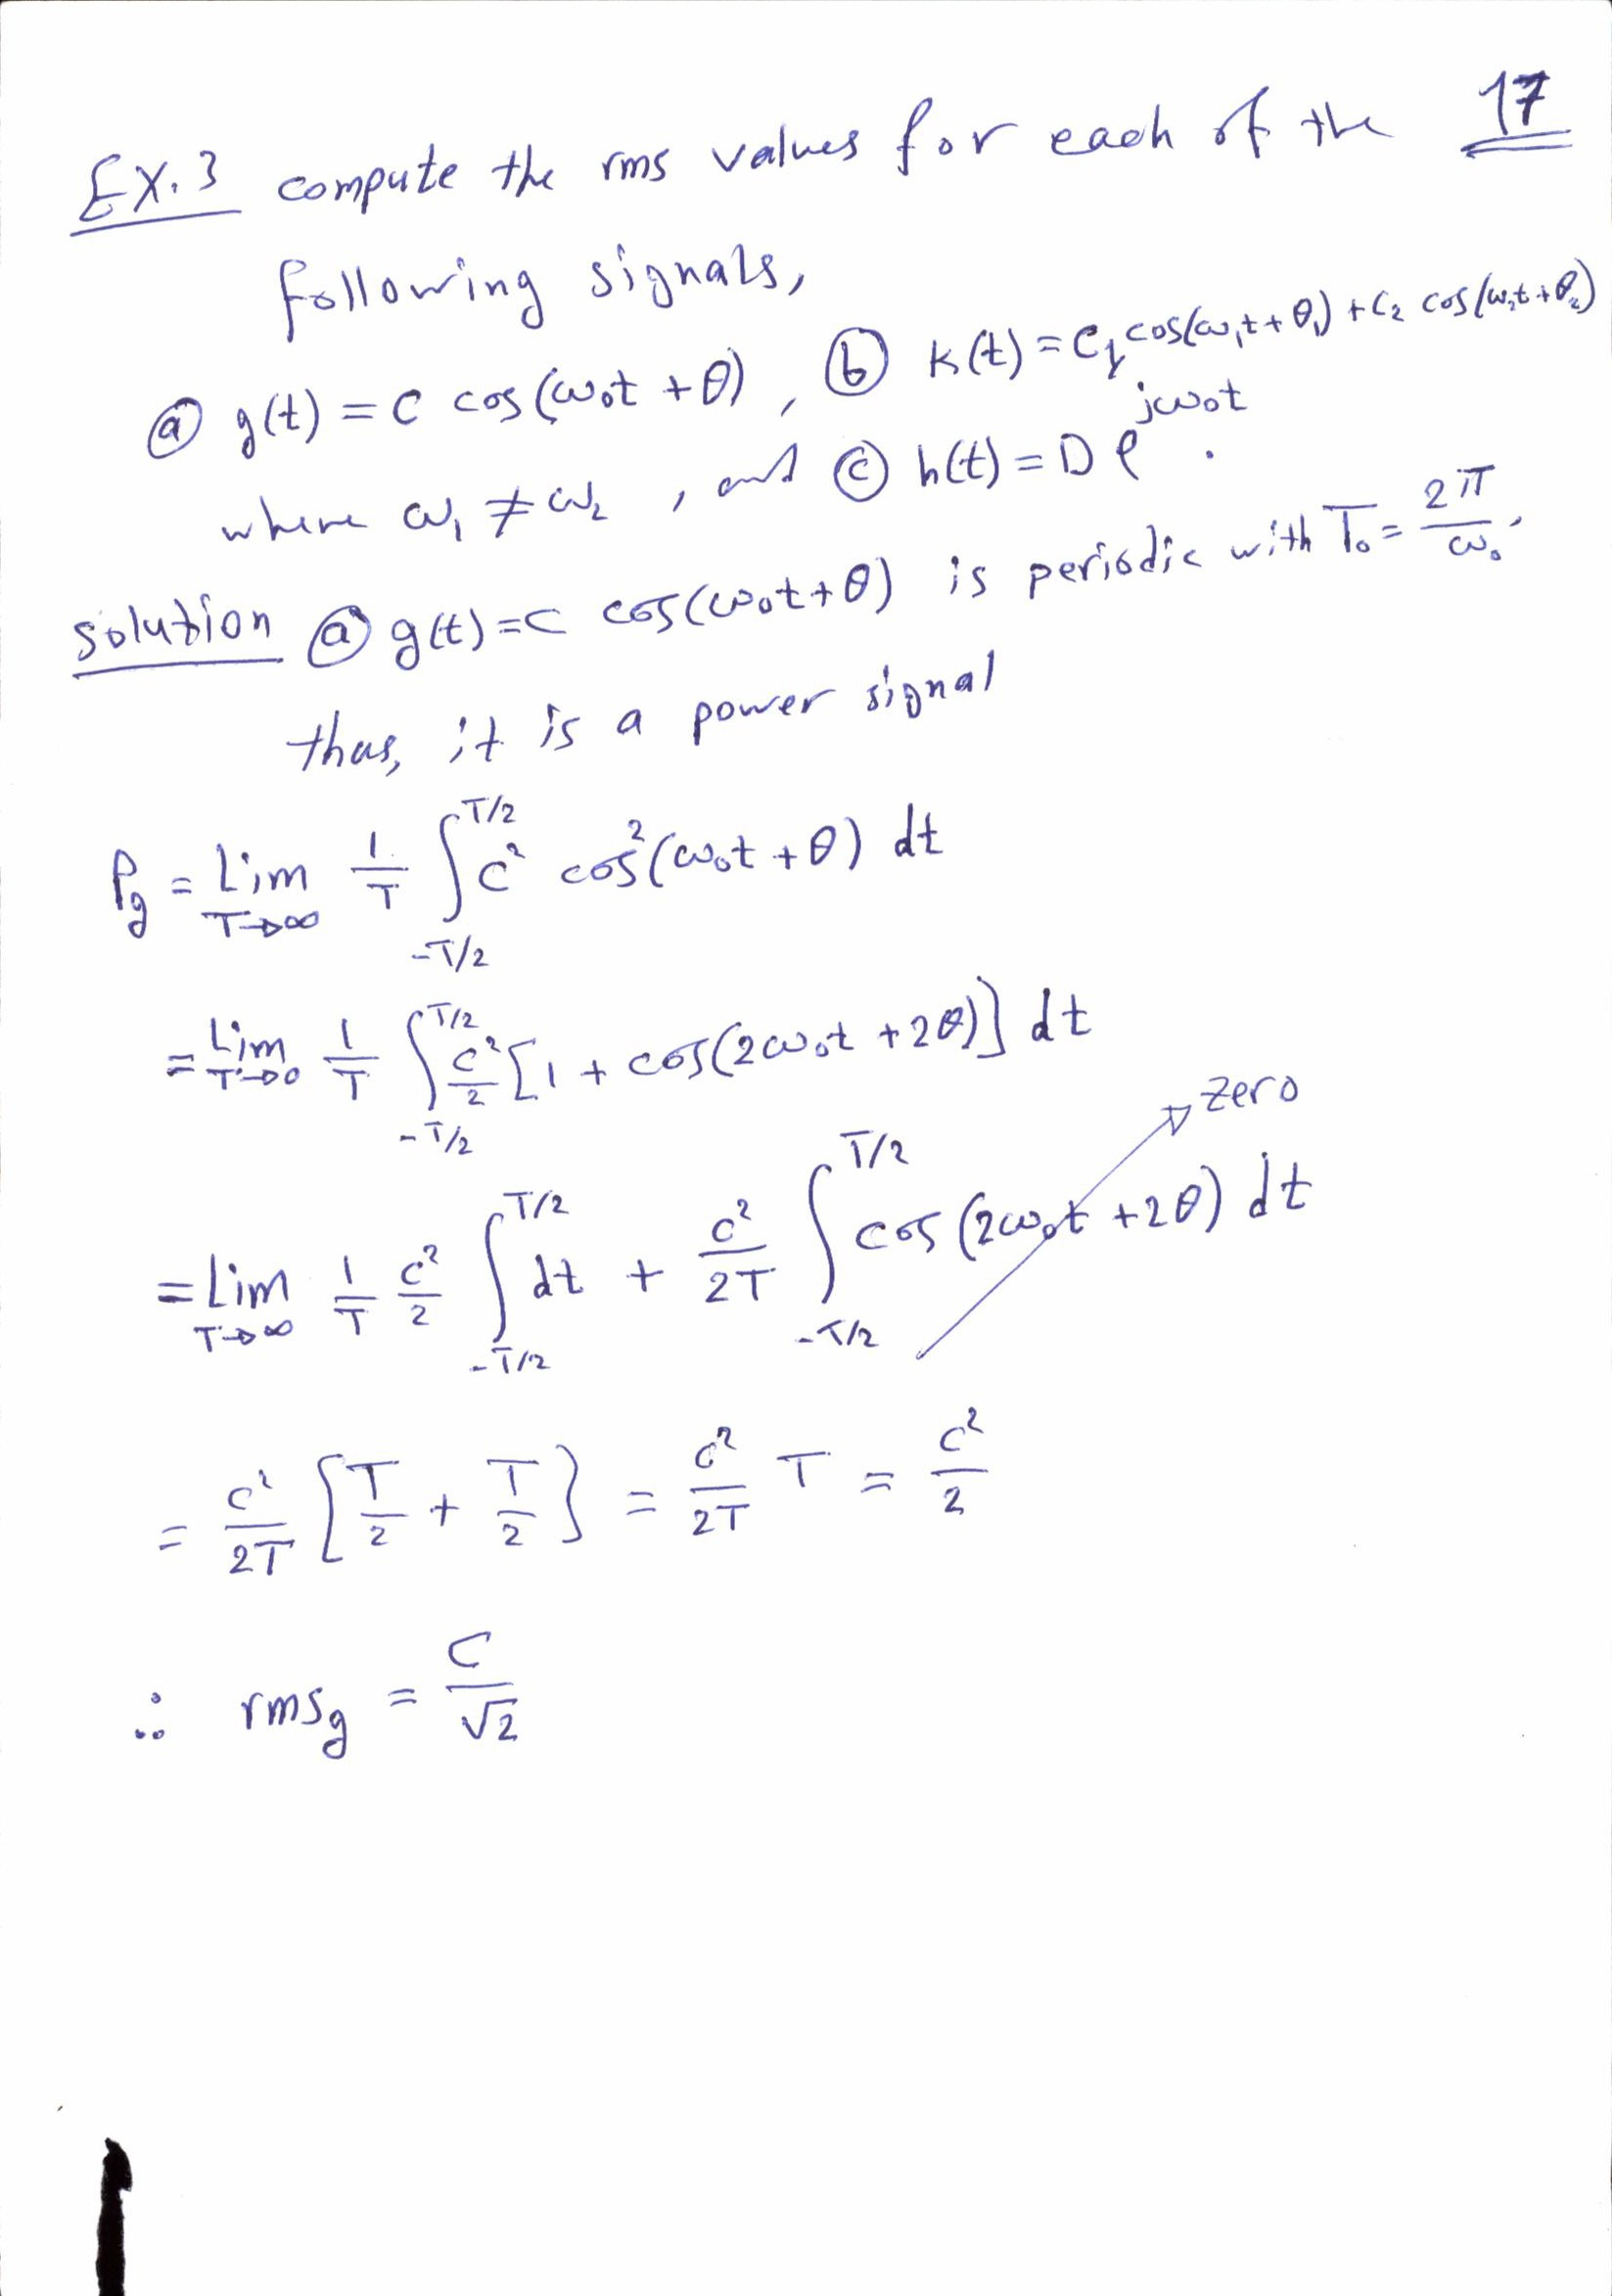 17
Ex.3 compute the rms values for each of the
following signals,
ⓐ g(t) = C cos(ω₀t + θ), ⓑ k(t) = C₁ cos(ω₁t + θ₁) + C₂ cos(ω₂t + θ₂)
where ω₁ ≠ ω₂, and ⓒ h(t) = D e^{jω₀t}.
solution ⓐ g(t) = C cos(ω₀t + θ) is periodic with T₀ = 2π/ω₀,
thus, it is a power signal
P_g = Lim_{T→∞} 1/T ∫_{-T/2}^{T/2} C² cos²(ω₀t + θ) dt
= Lim_{T→0} 1/T ∫_{-T/2}^{T/2} C²/2 [1 + cos(2ω₀t + 2θ)] dt
= Lim_{T→∞} 1/T C²/2 ∫_{-T/2}^{T/2} dt + C²/2T ∫_{-T/2}^{T/2} cos(2ω₀t + 2θ) dt → zero
= C²/2T [T/2 + T/2} = C²/2T T = C²/2
∴ rms_g = C/√2